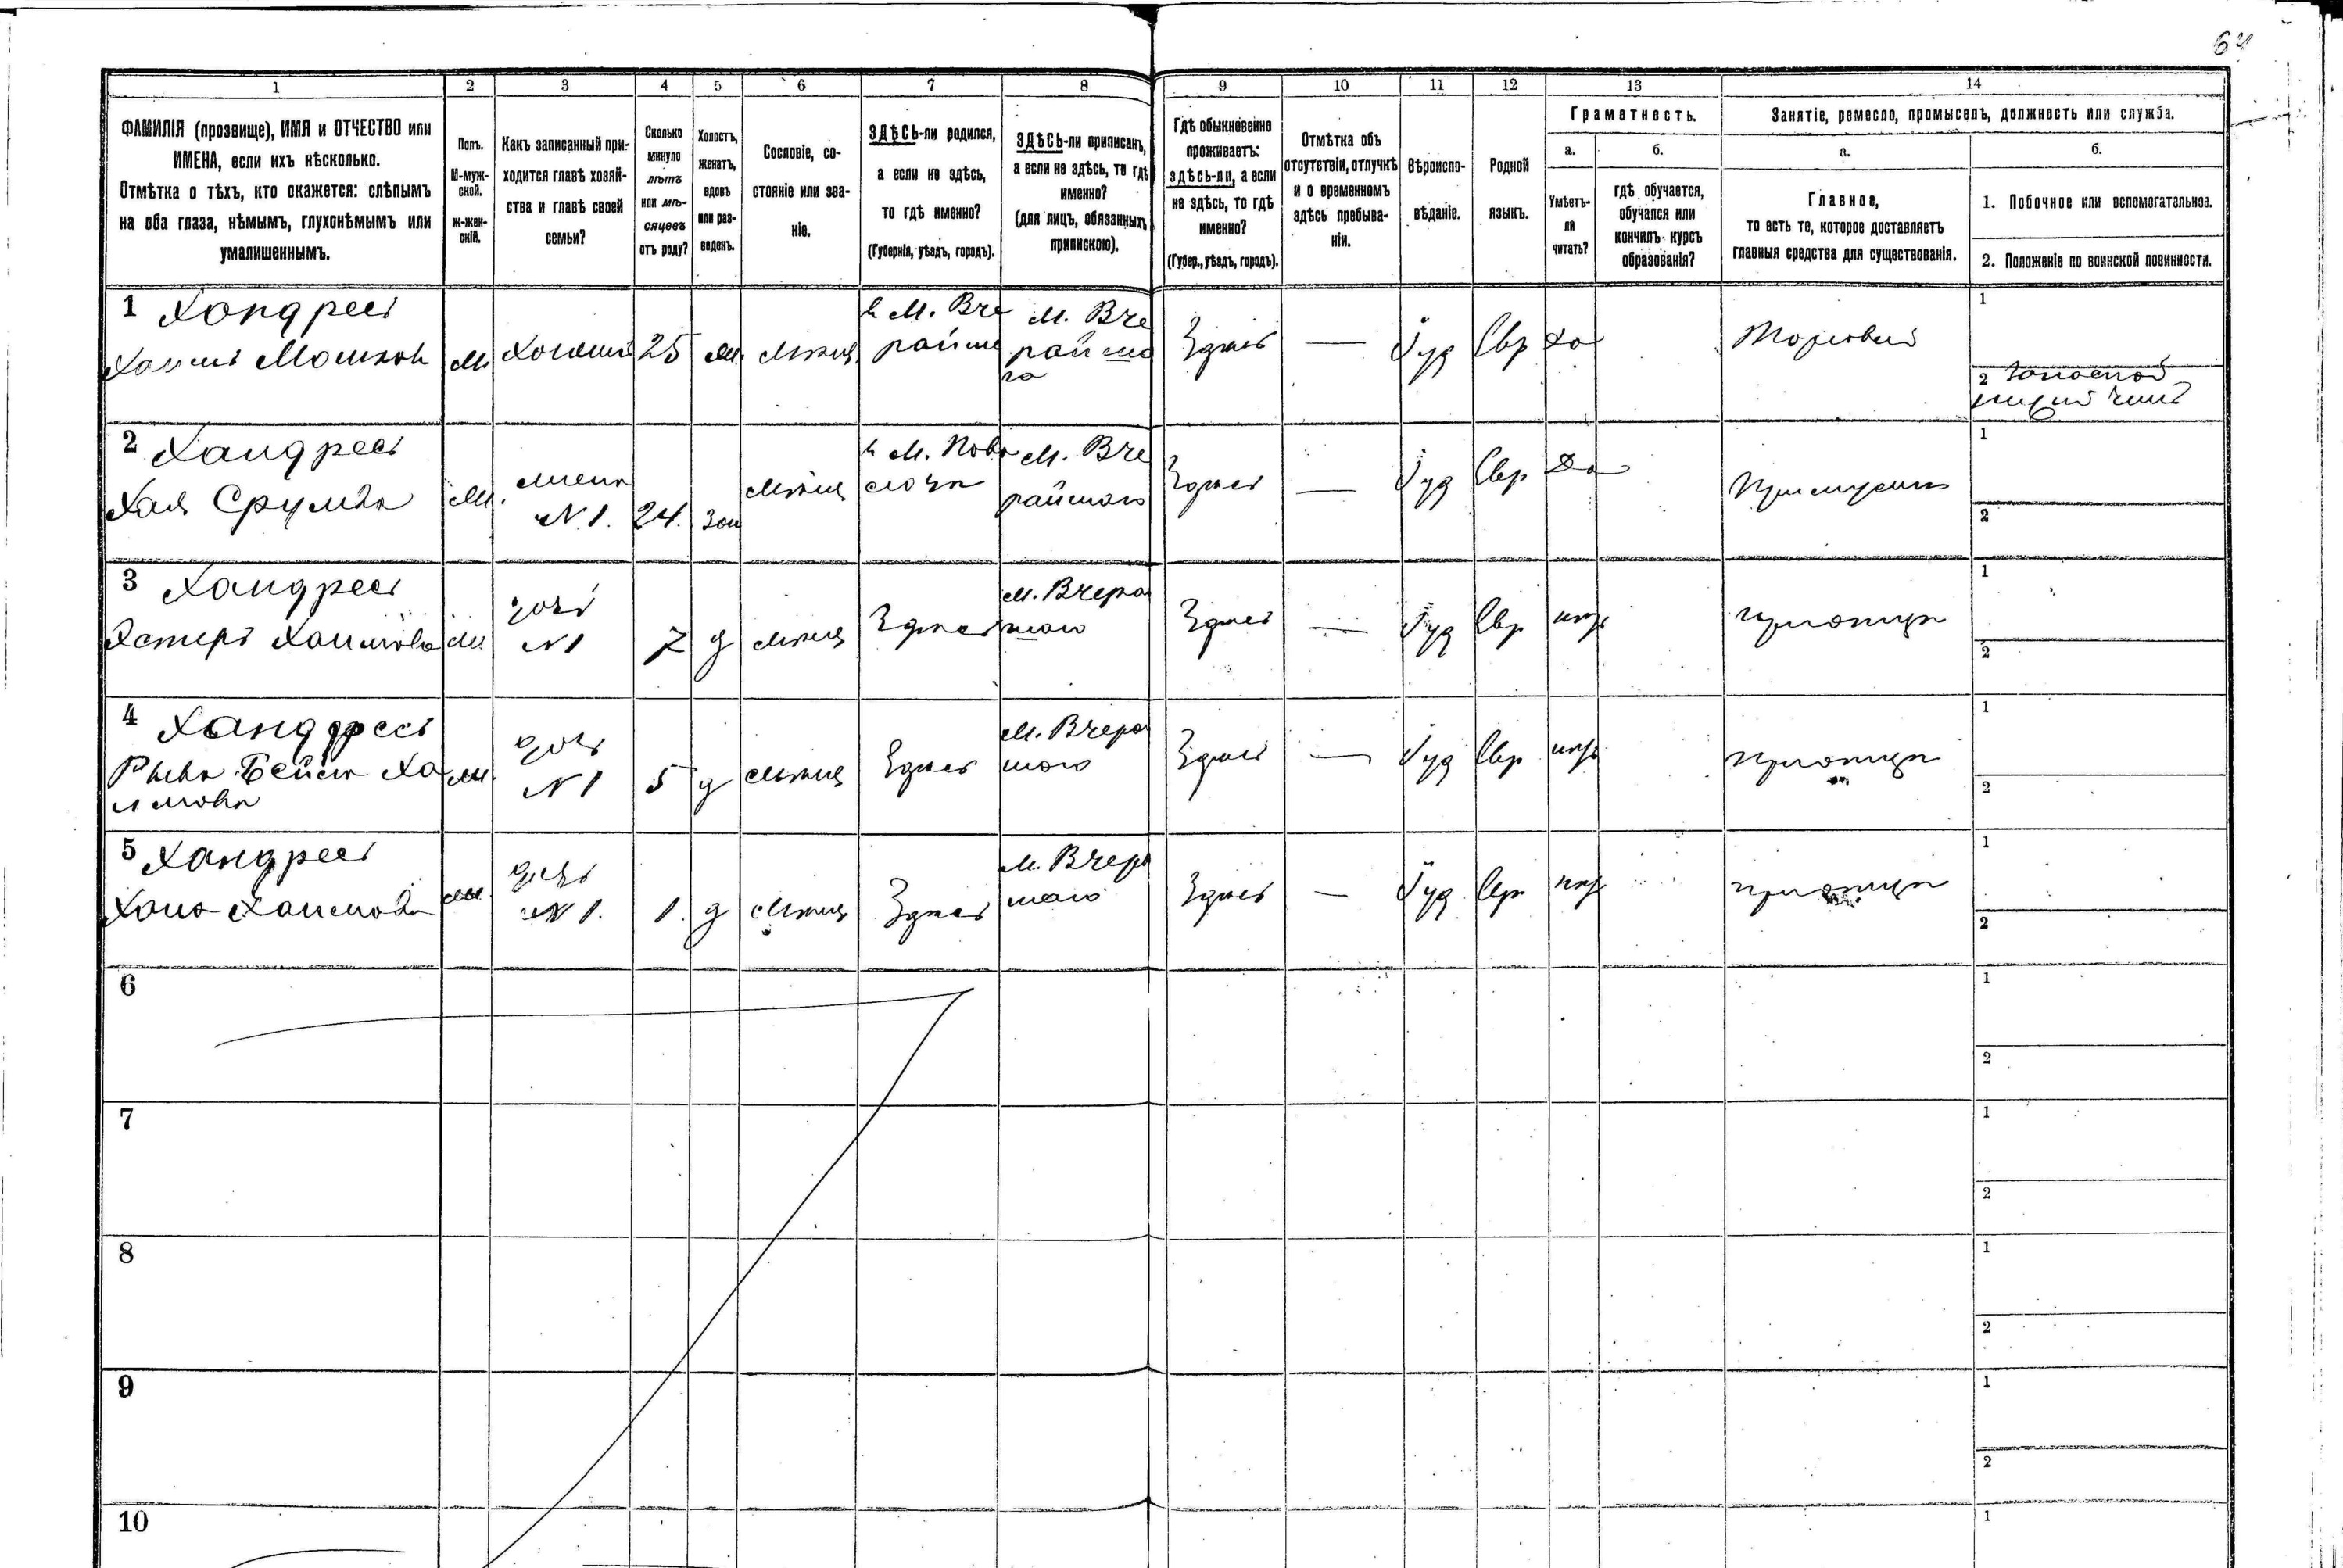 64
1 2 3 4 5 6 7 8 9 10 11 12 13 14
ФАМИЛІЯ (прозвище), ИМЯ и ОТЧЕСТВО или
ИМЕНА, если ихъ нѣсколько.
Отмѣтка о тѣхъ, кто окажется: слѣпымъ
на оба глаза, нѣмымъ, глухонѣмымъ или
умалишеннымъ.
Полъ.
М-муж-
ской.
Ж-жен-
скій.
Какъ записанный при-
ходится главѣ хозяй-
ства и главѣ своей
семьи?
Сколько
минуло
лѣтъ
или мѣ-
сяцевъ
отъ роду?
Холостъ,
женатъ,
вдовъ
или раз-
веденъ.
Сословіе, со-
стояніе или зва-
ніе.
ЗДѢСЬ-ли родился,
а если не здѣсь,
то гдѣ именно?
(Губернія, уѣздъ, городъ).
ЗДѢСЬ-ли приписанъ,
а если не здѣсь, то гдѣ
именно?
(для лицъ, обязанныхъ
припискою).
Гдѣ обыкновенно
проживаетъ:
здѣсь-ли, а если
не здѣсь, то гдѣ
именно?
(Губер., уѣздъ, городъ).
Отмѣтка объ
отсутствіи, отлучкѣ
и о временномъ
здѣсь пребыва-
ніи.
Вѣроиспо-
вѣданіе.
Родной
языкъ.
Грамотность.
а.
Умѣетъ-
ли
читать?
б.
гдѣ обучается,
обучался или
кончилъ курсъ
образованія?
Занятіе, ремесло, промыселъ, должность или служба.
а.
Главное,
то есть то, которое доставляетъ
главныя средства для существованія.
б.
1. Побочное или вспомогательное.
2. Положеніе по воинской повинности.
1 Хандресъ
Хаимъ Мошков
М
Хозяинъ
25
М. Вче
райше
М. Вче
райша
го
Здѣсь
—
Іуд
Евр
да
Торговый
1
2 Запасной
чинъ
2 Хандресъ
Хая Срулева
жена
N 1.
24.
зам
М. Вче
райшаго
Здѣсь
—
Іуд
Евр
Да
При мужѣ
1
2
3 Хандресъ
Эстеръ Хаимова
дочь
N 1
7
д
Здѣсь
М. Вчера
шаго
Здѣсь
—
Іуд
Евр
нѣт
при отцѣ
1
2
4 Хандресъ
Рыва Бейла Ха
имова
дочь
N 1
5
д
Здѣсь
М. Вчера
шаго
Здѣсь
—
Іуд
Евр
нѣт
при отцѣ
1
2
5 Хандресъ
Хана Хаимова
дочь
N 1.
1.
д
Здѣсь
М. Вчера
шаго
Здѣсь
—
Іуд
Евр
нѣт
при отцѣ
1
2
6
1
2
7
1
2
8
1
2
9
1
2
10
1